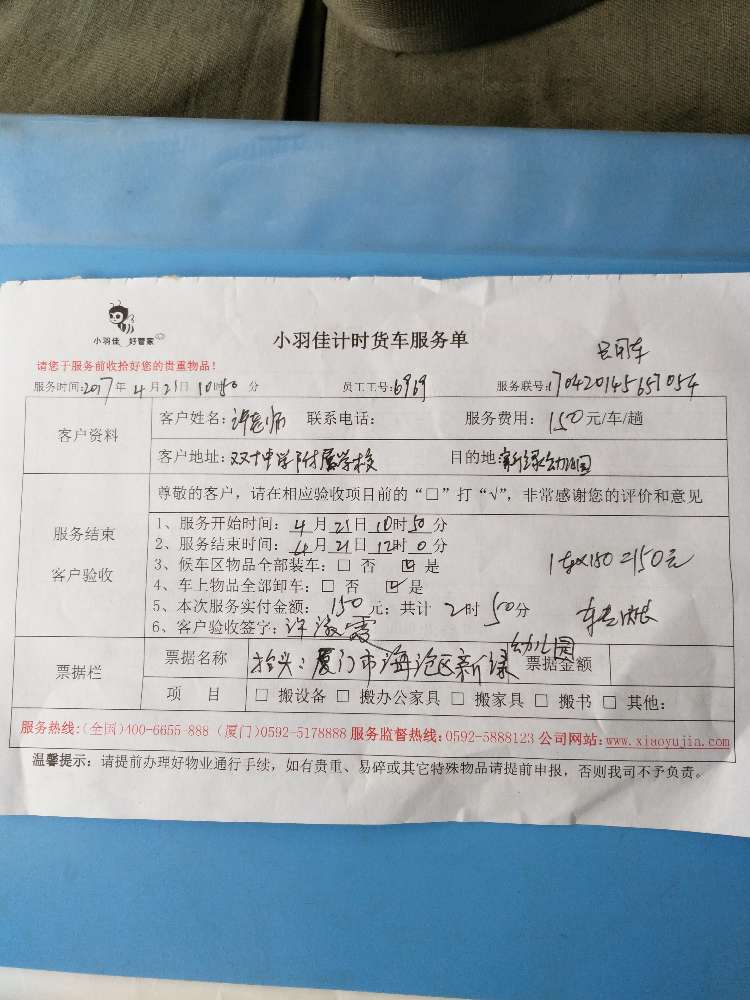 小羽佳 好管家
小羽佳计时货车服务单
只用车
请您于服务前收拾好您的贵重物品!
服务时间:2017年4月21日10时50分 员工工号:6969 服务联号:170420145657054
客户资料
客户姓名:许老师 联系电话: 服务费用:150元/车/趟
客户地址:双十中学附属学校 目的地:新绿幼儿园
服务结束
客户验收
尊敬的客户,请在相应验收项目前的“□”打“√”,非常感谢您的评价和意见
1、服务开始时间:4月21日10时50分
2、服务结束时间:4月21日12时0分
3、候车区物品全部装车:□ 否 ☑ 是
4、车上物品全部卸车:□ 否 ☑ 是
5、本次服务实付金额:150元;共计2时50分
6、客户验收签字:许
1车x150=150元
票据栏
票据名称 抬头:厦门市海沧区新绿幼儿园 票据金额
项 目 □ 搬设备 □ 搬办公家具 □ 搬家具 □ 搬书 □ 其他:
服务热线:(全国)400-6655-888 (厦门)0592-5178888 服务监督热线:0592-5888123 公司网站:www.xiaoyujia.com
温馨提示:请提前办理好物业通行手续,如有贵重、易碎或其它特殊物品请提前申报,否则我司不予负责。